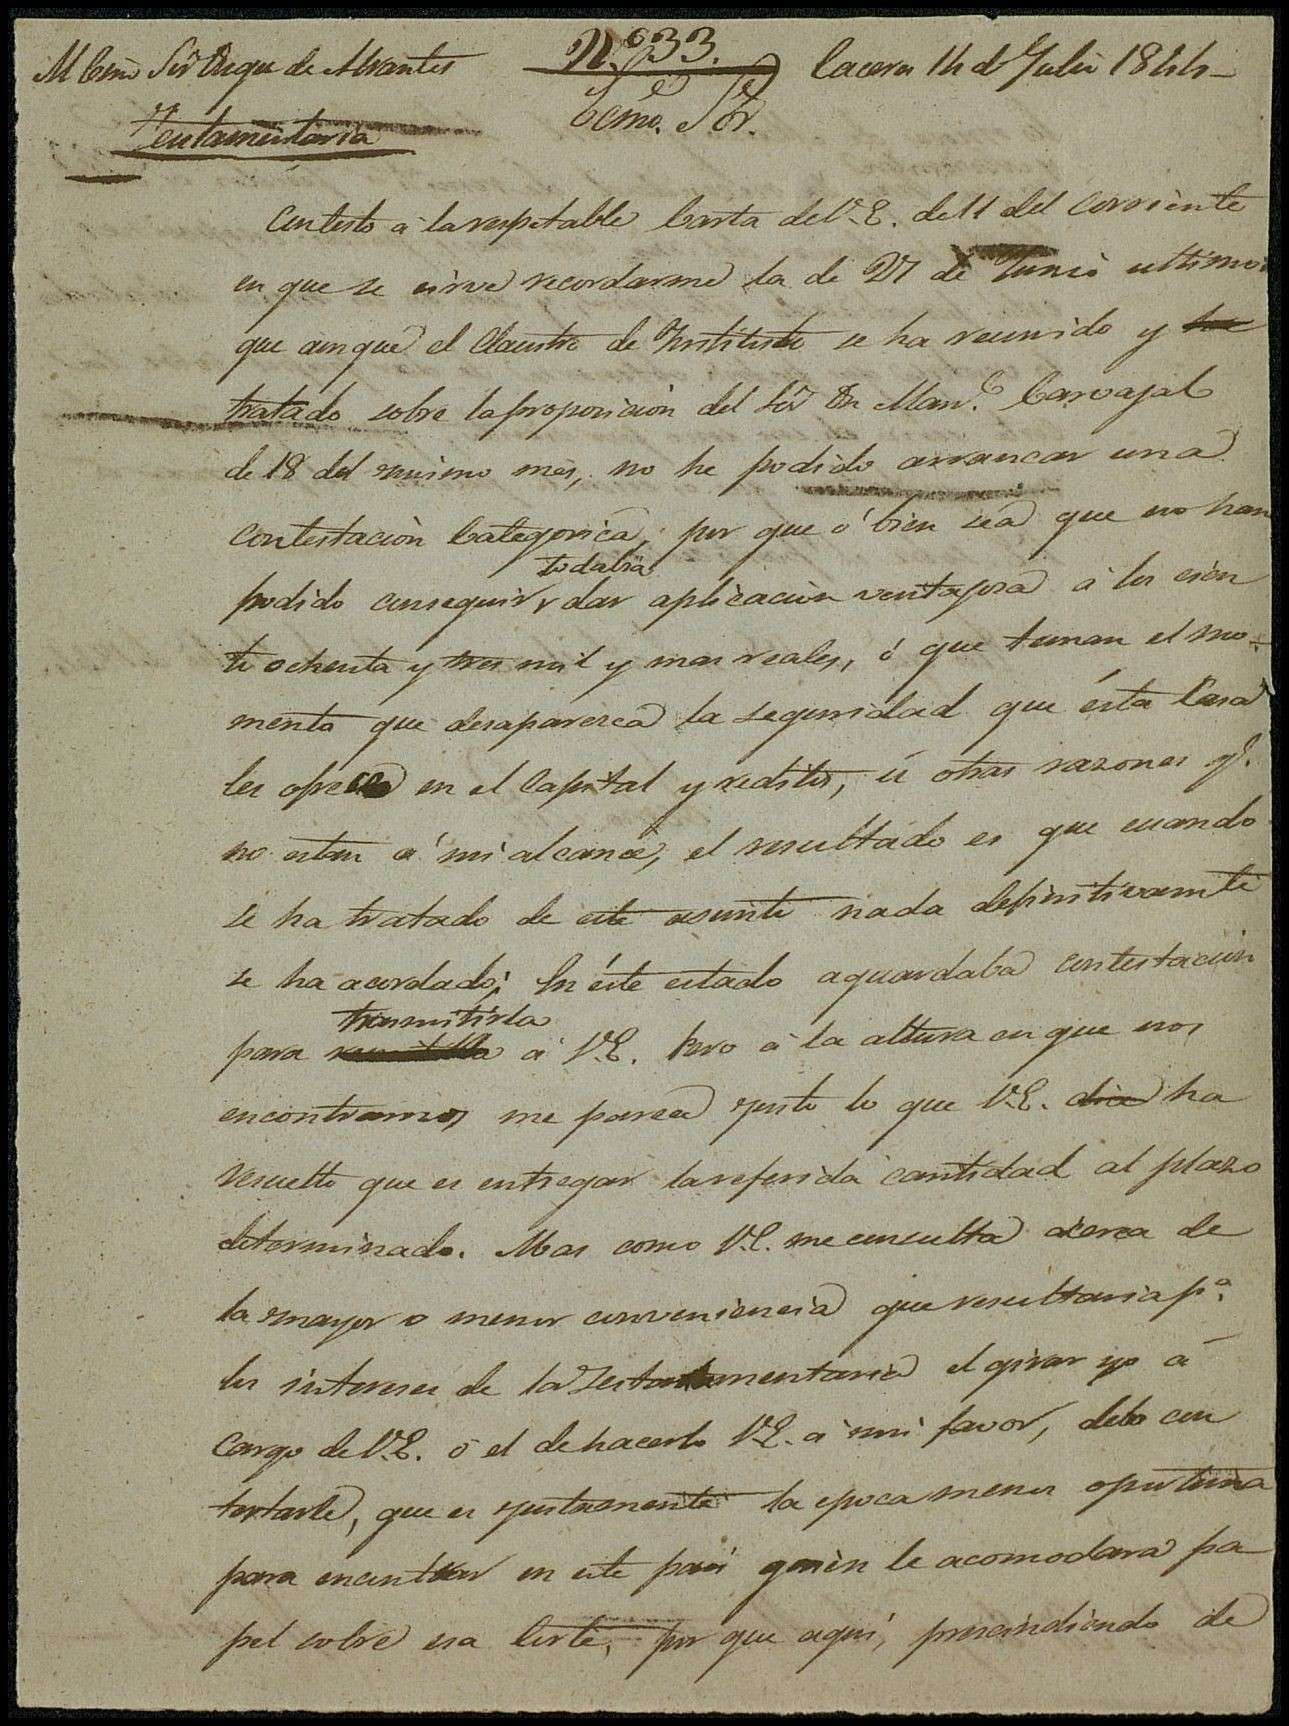 Nº 33.
Al Exmo Sör Duque de Abrantes
Caceres 14 de Julio 1844
Testamentaria
Ecmo. Sör.
Contesto á la respetable Carta de V.E. de 11 del corriente
en que se sirve recordarme la de 27 de Junio ultimo
que aunque el Claustro de Instituto se ha reunido y
tratado sobre la proposicion del Sör Dn Man.l Carvajal
de 18 del mismo mes, no he podido arrancar una
contestación Categorica, por que ó bien sea que no han
todabia
podido conseguir dar aplicación ventajosa á los cien
to ochenta y tres mil y mas reales, ó que teman el mo-
mento que desaparesca la seguridad que ésta Casa
les ofrece en el Capital y reditos, ú otras razones q.e
no estan á mi alcance, el resultado es que cuando
se ha tratado de este asunto nada definitivamte
se ha acordado; En éste estado aguardaba contestación
transmitirla
para á V.E. Pero á la altura en que nos
encontramos me parece justo lo que V.E. dice ha
resuelto que es entregar la referida cantidad al plazo
determinado. Mas como V.E. me consulta acerca de
la mayor o menor conveniencia que resultaria p.a
los intereses de la Testamentaria el girar yo á
cargo de V.E. ó el de hacerlo V.E. á mi favor, debo con
testarle, que es justamente la epoca menos oportuna
para encontrar en este pais quien le acomodara pa
pel sobre esa Corte, por que aqui, prescindiendo de